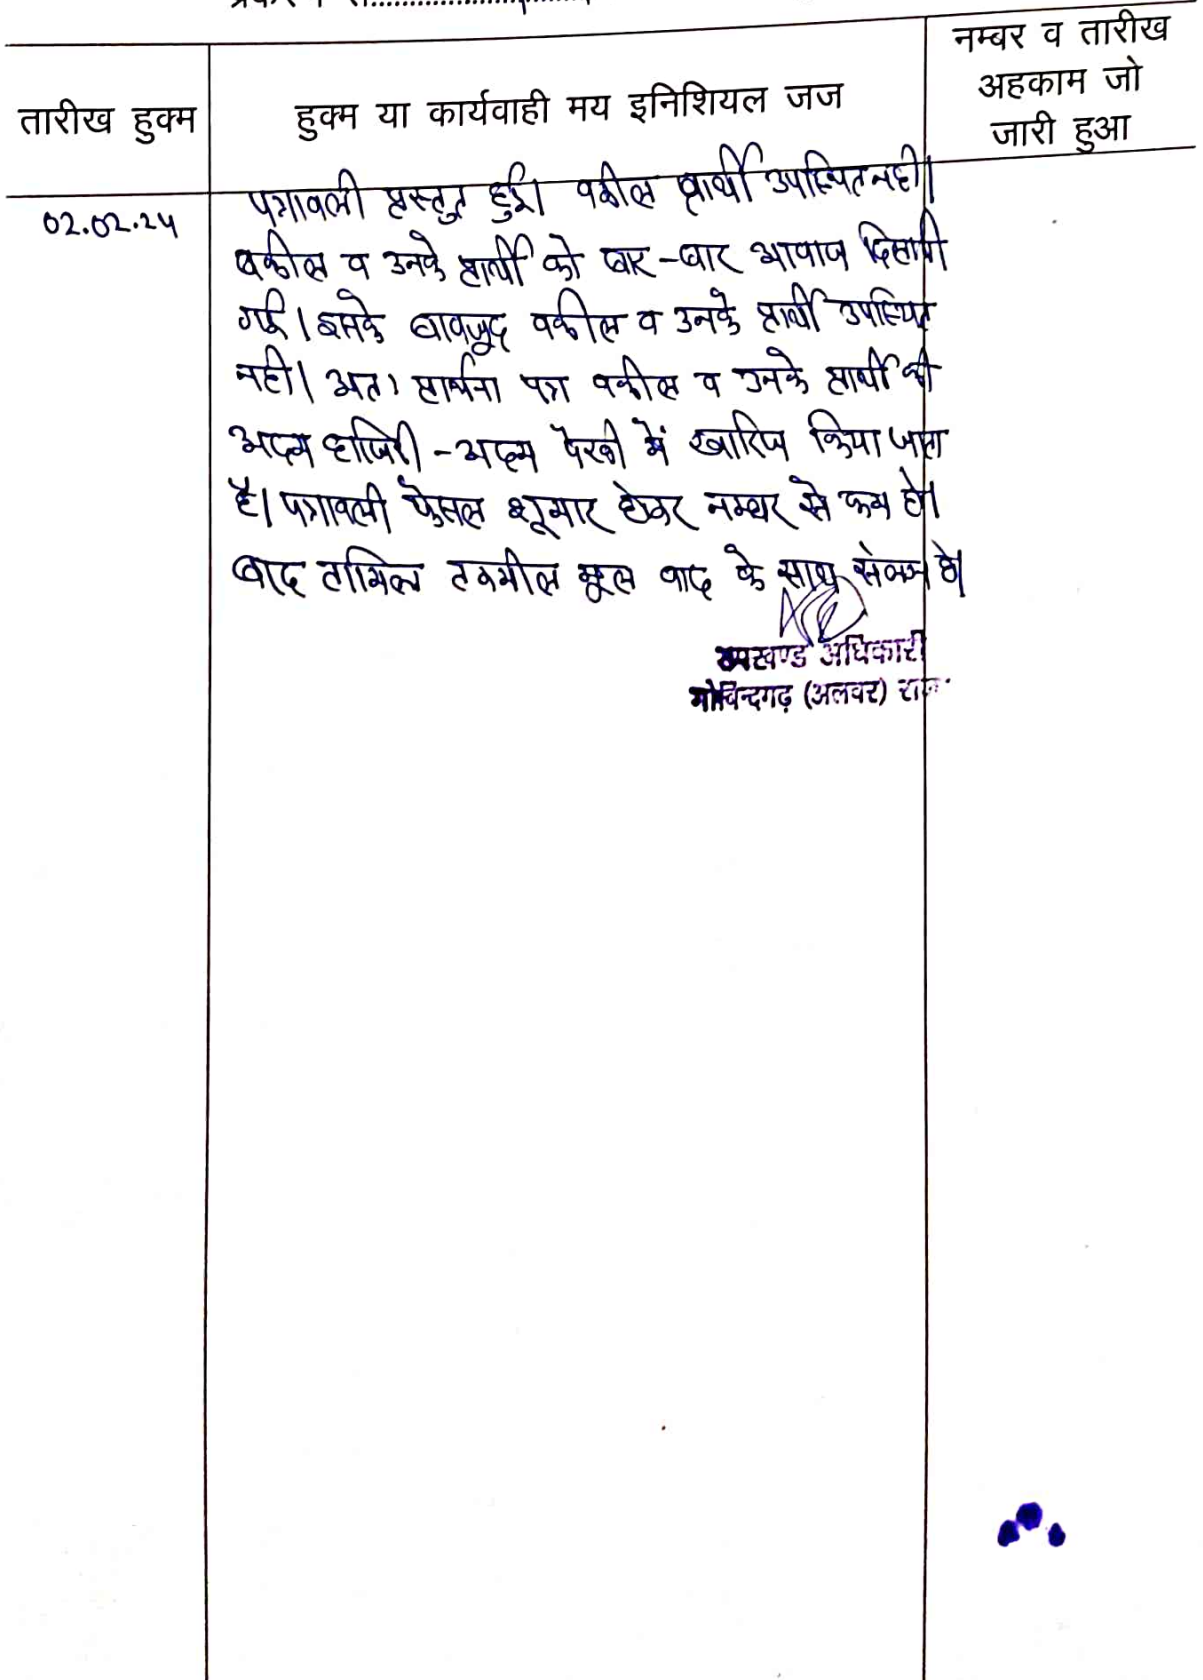 तारीख हुक्म
हुक्म या कार्यवाही मय इनिशियल जज
नम्बर व तारीख
अहकाम जो
जारी हुआ
02.02.24
पत्रावली प्रस्तुत हुई। वकील प्रार्थी उपस्थित नही।
वकील व उनके प्रार्थी को बार-बार आवाज दिलायी
गई। इसके बावजूद वकील व उनके प्रार्थी उपस्थित
नही। अतः प्रार्थना पत्र वकील व उनके प्रार्थी की
अदम हाजिरी-अदम पैरवी में खारिज किया जाता
है। पत्रावली फैसल शूमार होकर नम्बर से कम हो।
बाद तामिल तकमील मूल वाद के साथ संलग्न हो।
उपखण्ड अधिकारी
गोविन्दगढ़ (अलवर) राज.